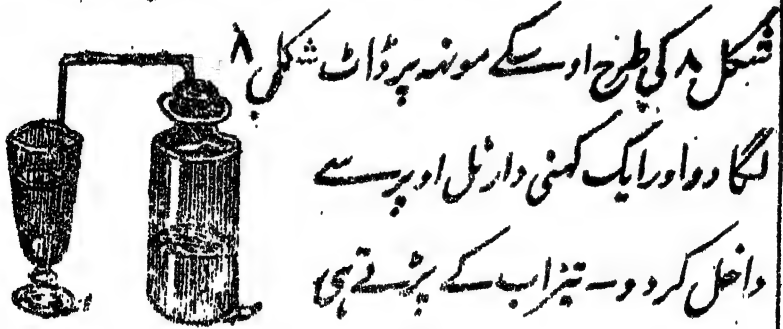 شکل ۸ کی طرح اوسکے مونہہ پر ڈاٹ شکل ۸
لگا دو اور ایک کہنی دار نل اوپر سے
داخل کر دو۔ تیزاب کے پڑتے ہی